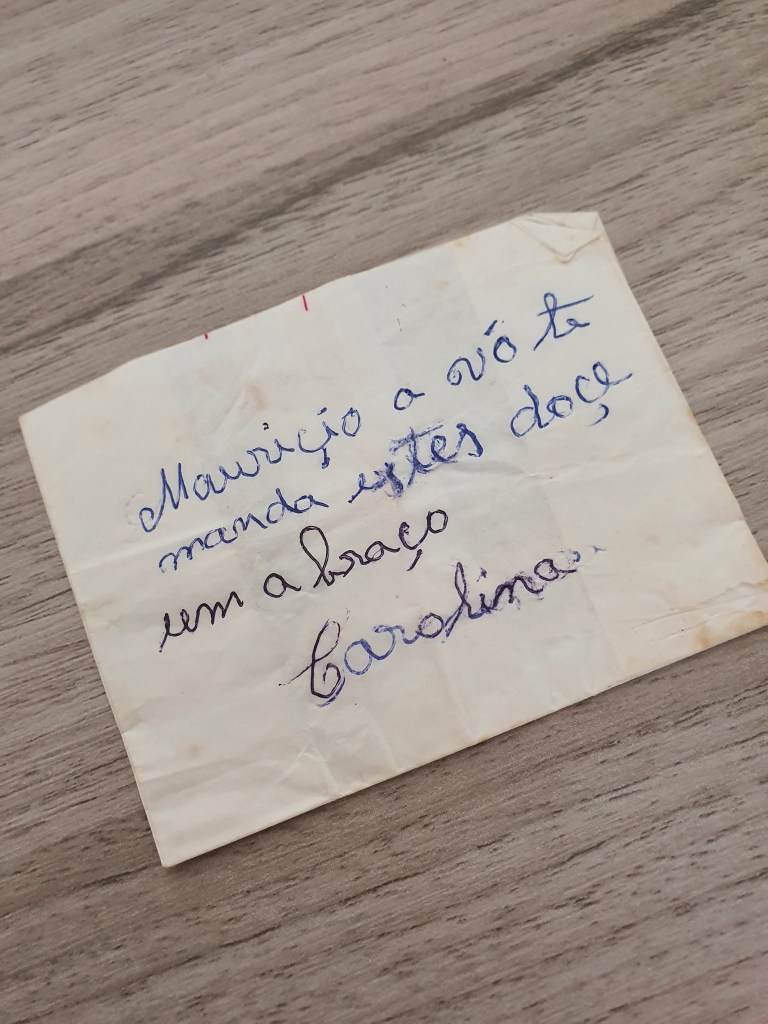 Mauriçio a vó te
manda estes doçe
um abraço
Carolina